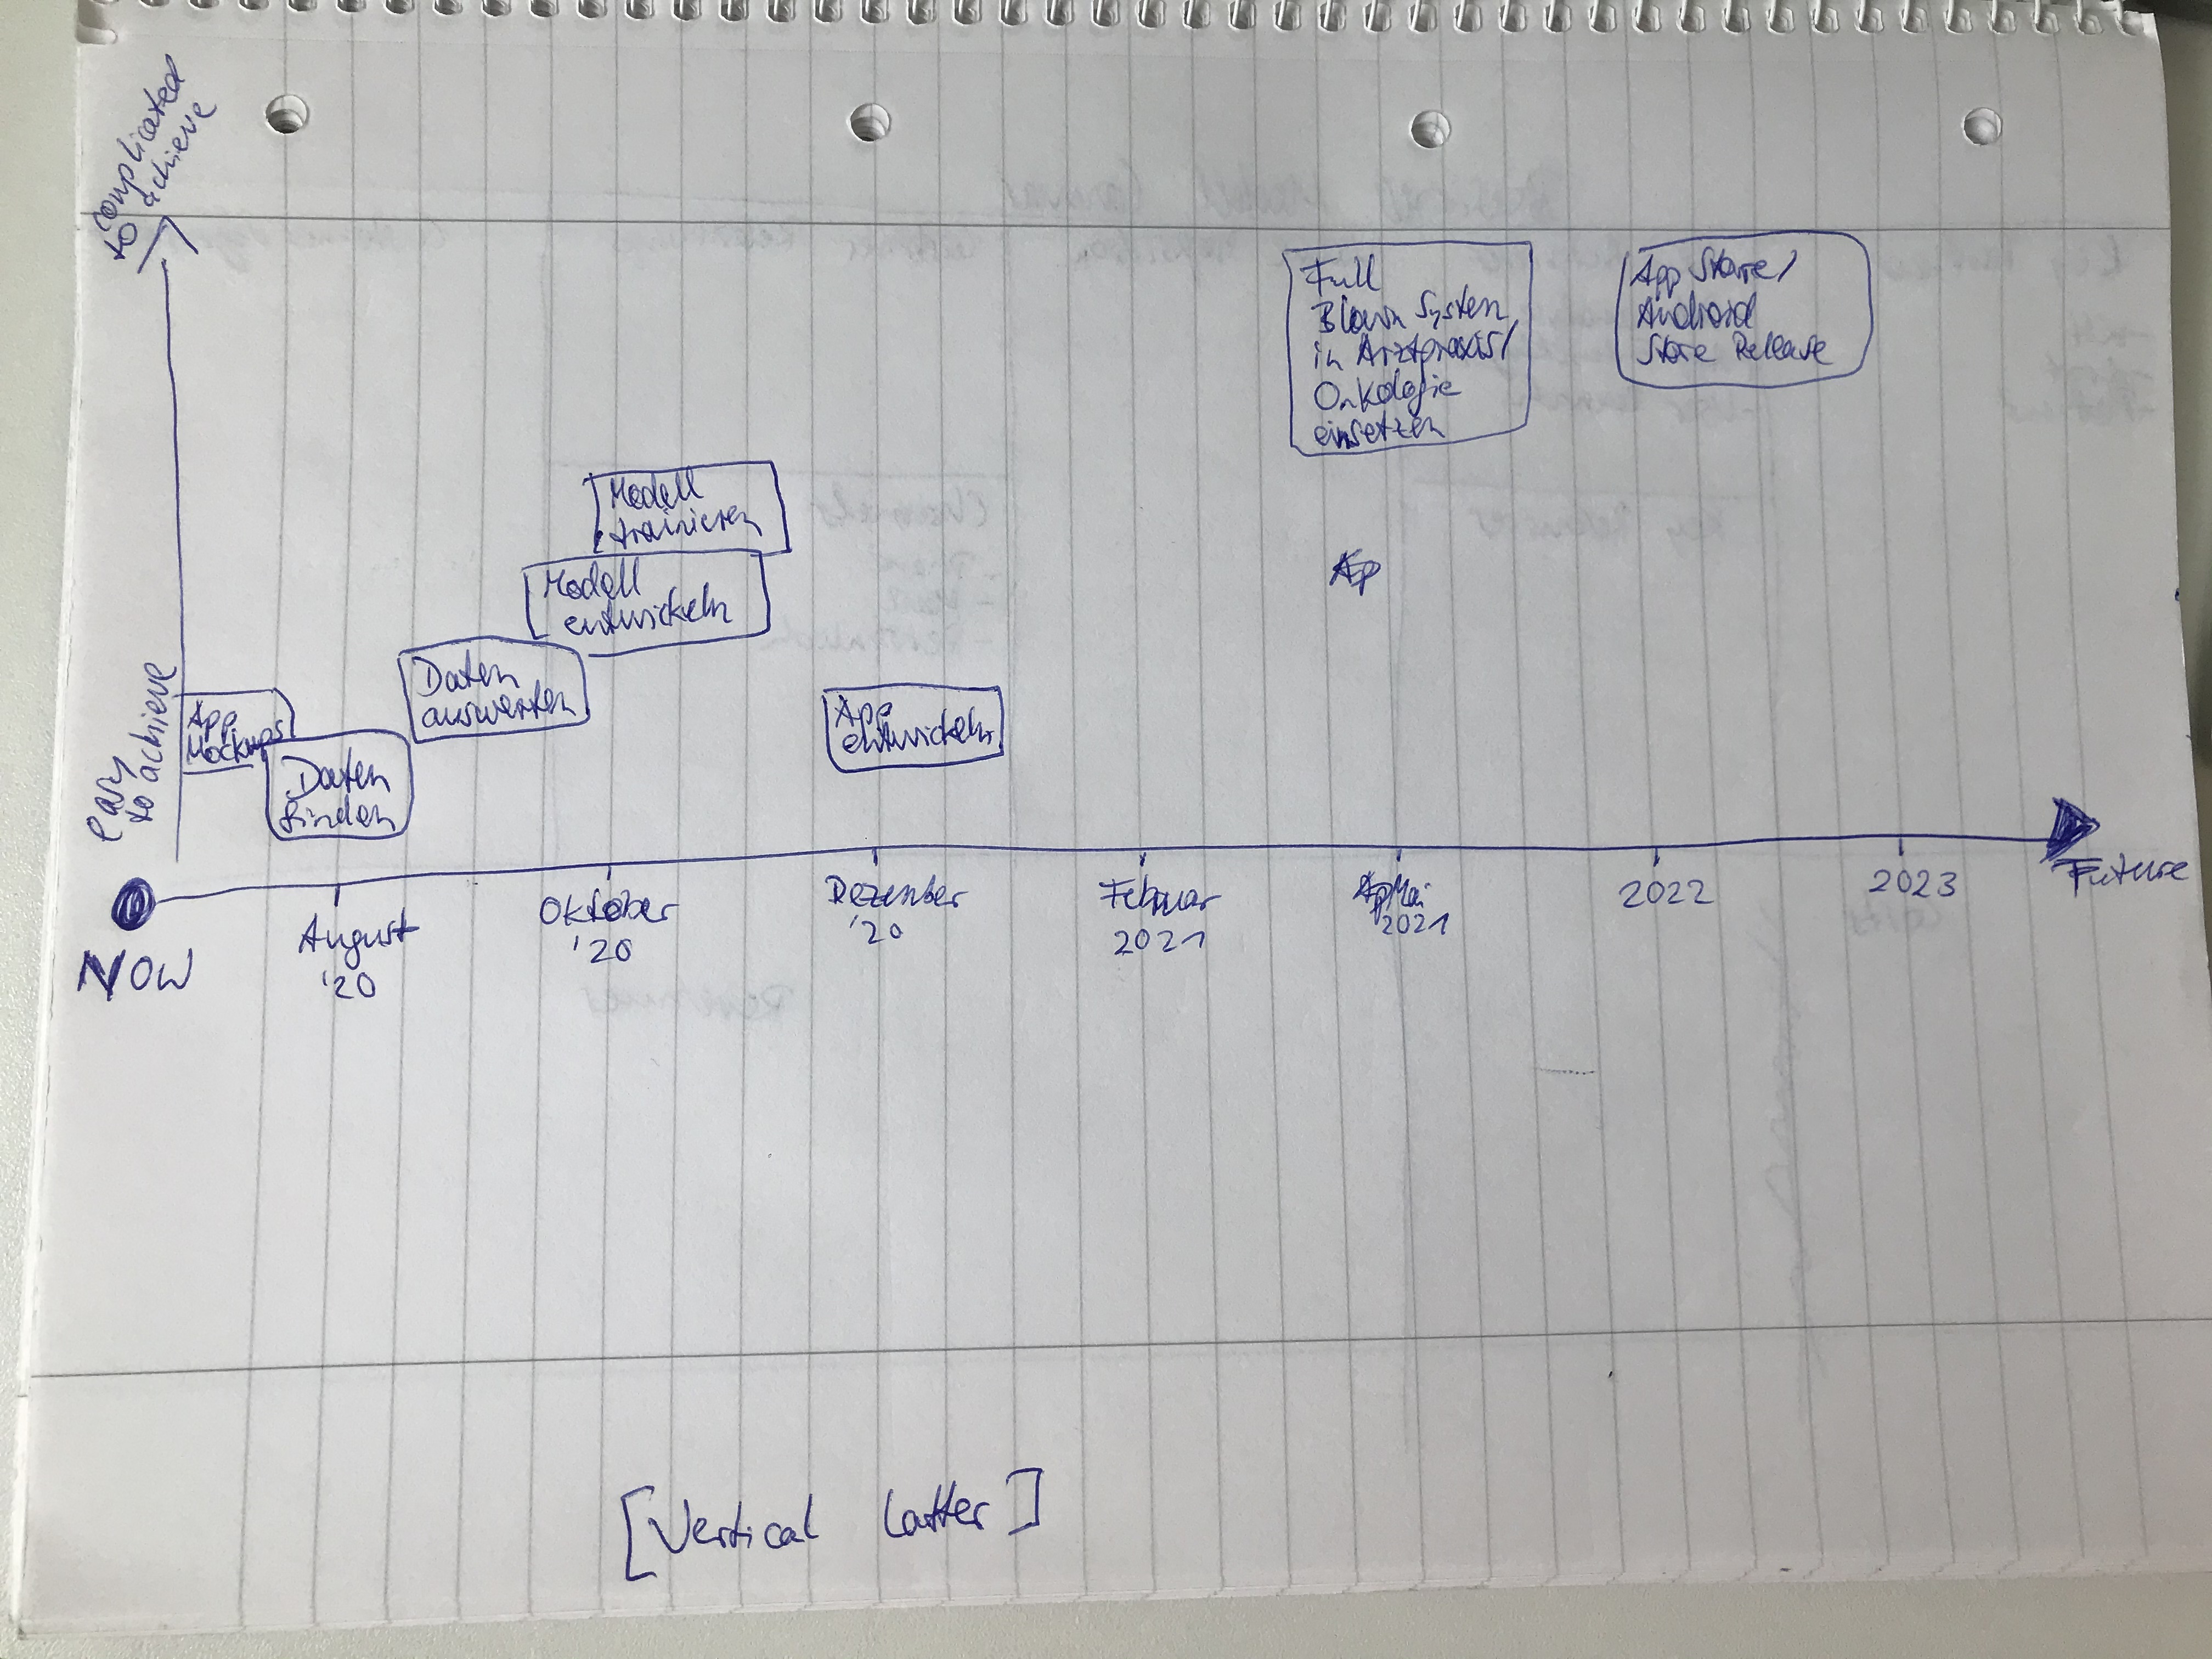 complicated
to achieve
easy
to achieve
App
Mockups
Daten
finden
Daten
auswerten
Modell
entwickeln
Modell
trainieren
App
entwickeln
Full
Blown System
in Arztpraxis/
Onkologie
einsetzen
App Store/
Android
Store Release
Ap
NOW
August
'20
Oktober
'20
Dezember
'20
Februar
2021
Mai
2021
2022
2023
Future
[Vertical Latter]